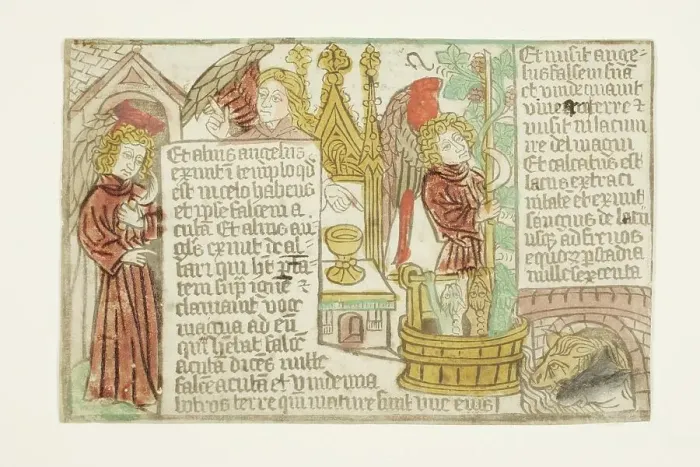 Et alius angelus
exiuit d̄ templo qd̄
est in celo habens
et ipse falcem a
cutā. Et alius an=
gl̄s exiuit de al=
tari qui ht̄ p̄ta
tem sup̄ ignē ⁊
clamauit voce
magna ad eū
qui h̄ebat falcē
acutā dicēs mitte
falcē acutā et vindemia
botros terre qm̄ mature sunt vue eius
Et misit ange=
lus falcem suā
et vindemiauit
vineā terre ⁊
misit in lacum
ire dei magni
Et calcatus est
lacus extra ci
uitatē et exiuit
sanguis de lacu
usq̄ ad frenos
equoꝝ p̄ stadia
mille sexcenta